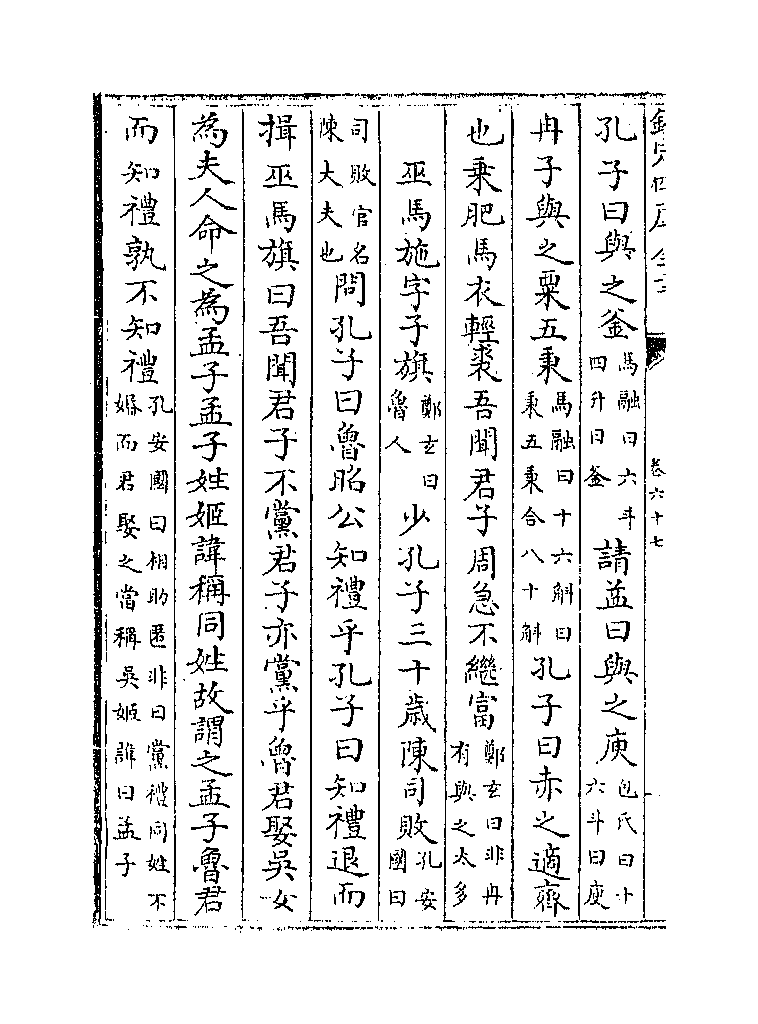 卷六十七
孔子曰與之釜馬融曰六斗四升曰釜請益曰與之庾包氏曰十六斗曰庾
冉子與之粟五秉馬融曰十六斛曰秉五秉合八十斛孔子曰赤之適齊
也乘肥馬衣輕裘吾聞君子周急不繼富鄭玄曰非冉有與之太多
巫馬施字子旗鄭玄曰魯人少孔子三十歲陳司敗孔安國曰
司敗官名陳大夫也問孔子曰魯昭公知禮乎孔子曰知禮退而
揖巫馬旗曰吾聞君子不黨君子亦黨乎魯君娶吳女
為夫人命之為孟子孟子姓姬諱稱同姓故謂之孟子魯君
而知禮孰不知禮孔安國曰相助匿非曰黨禮同姓不婚而君娶之當稱吳姬諱曰孟子